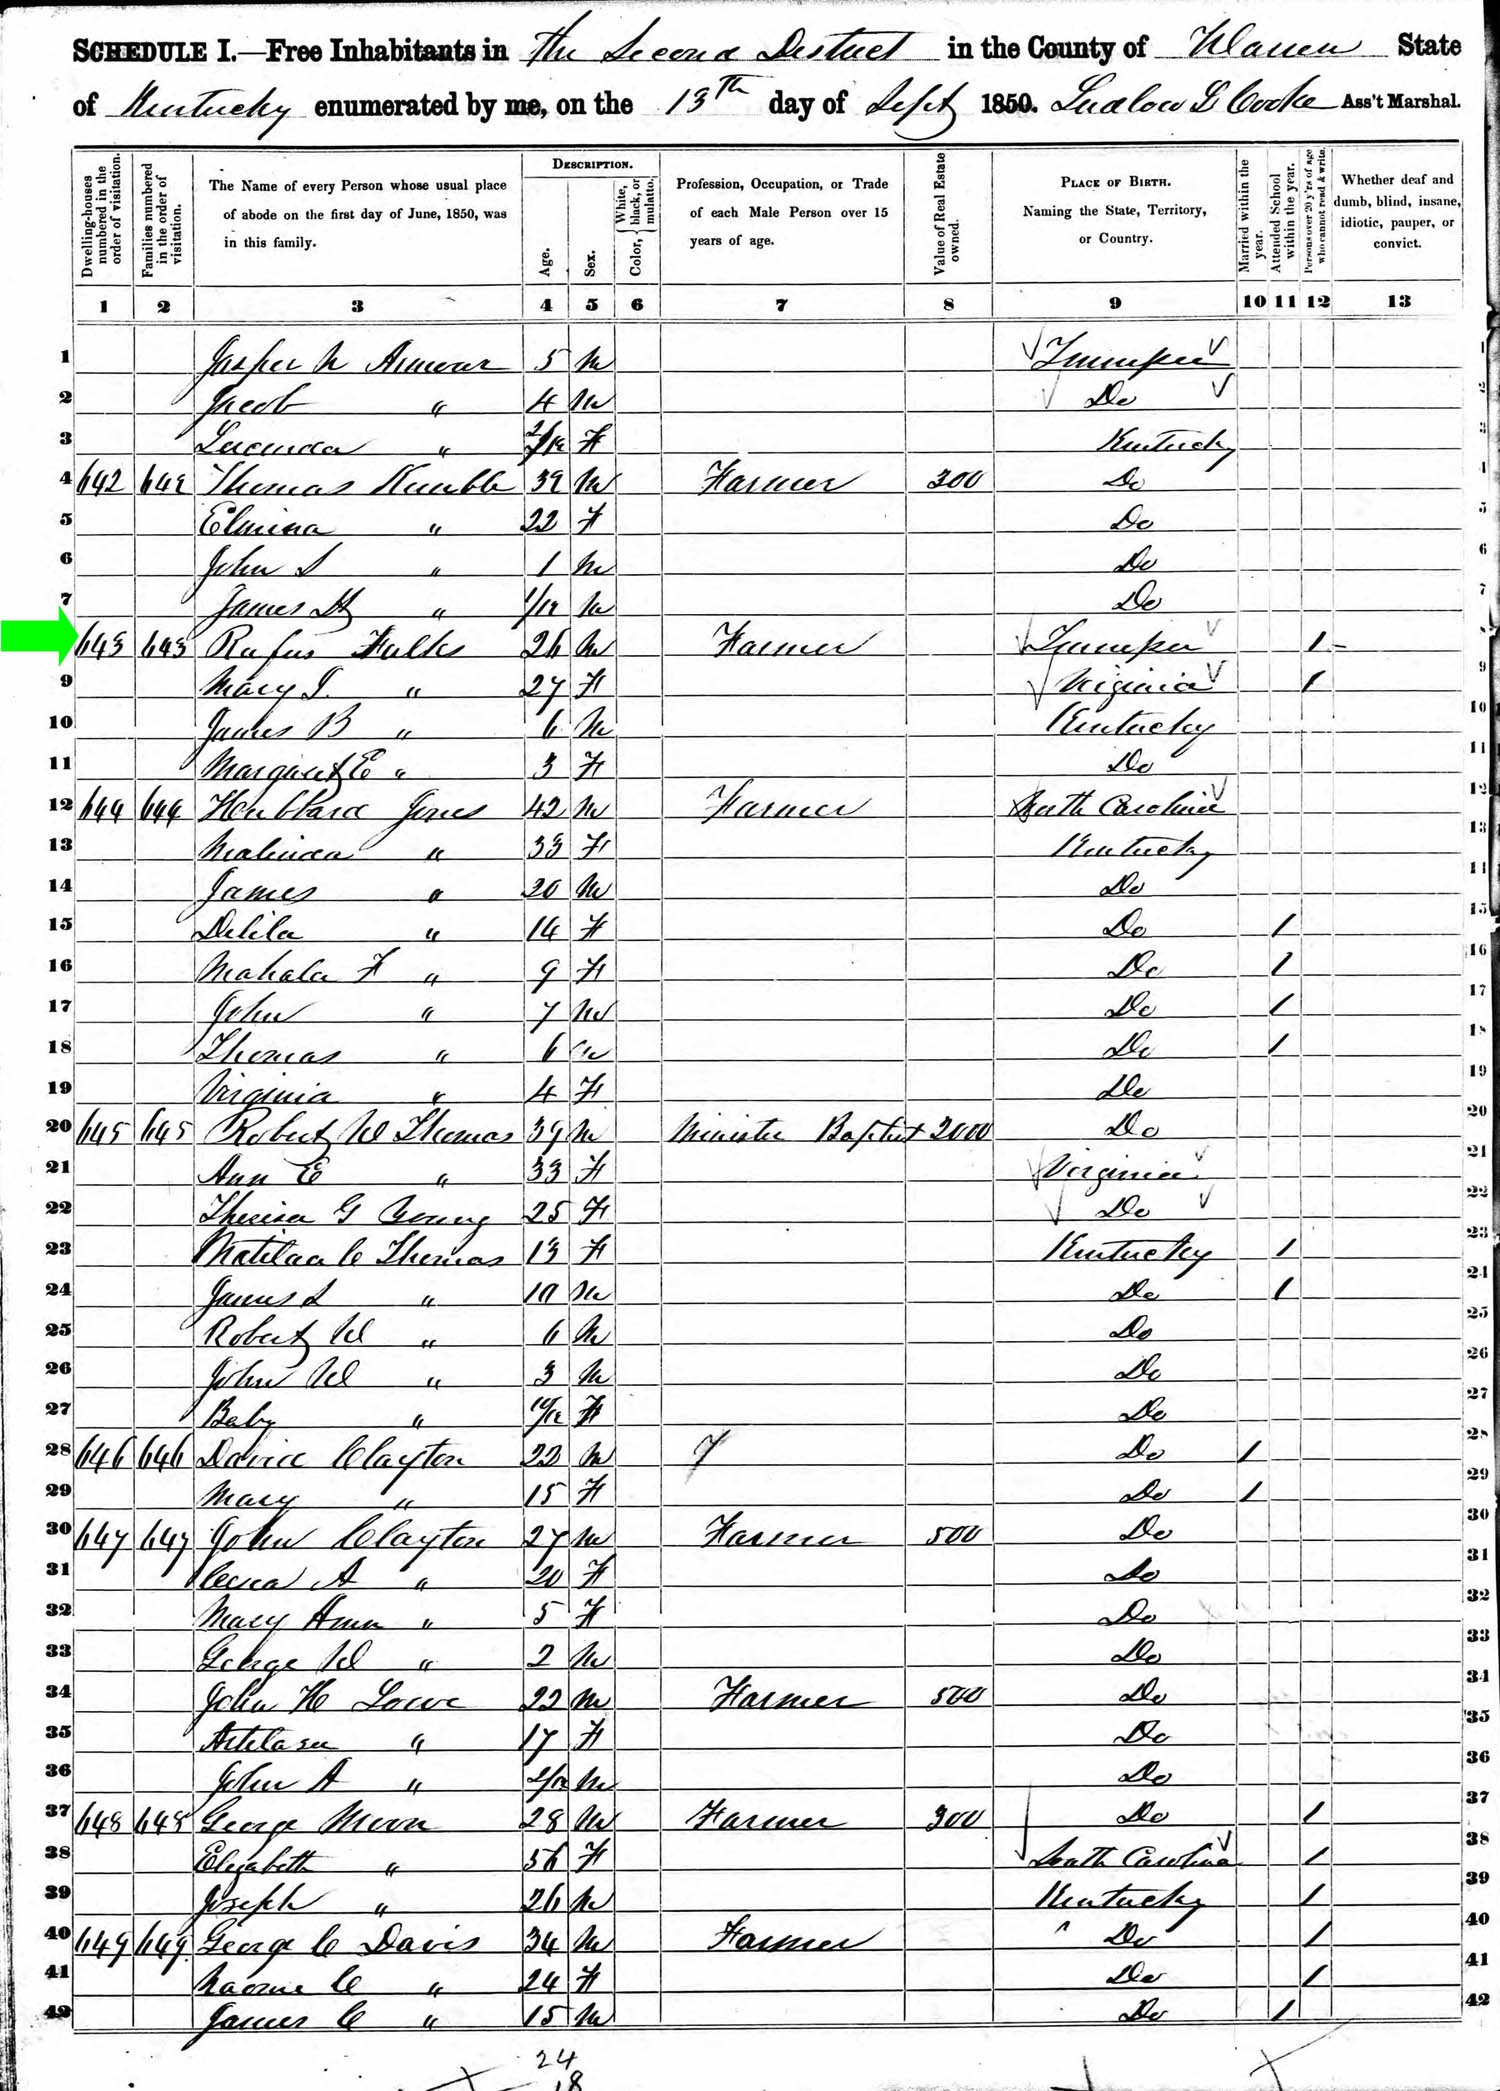 SCHEDULE I.—Free Inhabitants in the Second District in the County of Warren State
of Kentucky enumerated by me, on the 13th day of Sept 1850. Ludlow L Cooke Ass't Marshal.
Dwelling-houses numbered in the order of visitation.
Families numbered in the order of visitation.
The Name of every Person whose usual place of abode on the first day of June, 1850, was in this family.
DESCRIPTION.
Age.
Sex.
Color, { White, black, or mulatto.
Profession, Occupation, or Trade of each Male Person over 15 years of age.
Value of Real Estate owned.
PLACE OF BIRTH. Naming the State, Territory, or Country.
Married within the year.
Attended School within the year.
Persons over 20 y'rs of age who cannot read & write.
Whether deaf and dumb, blind, insane, idiotic, pauper, or convict.
1 2 3 4 5 6 7 8 9 10 11 12 13
1 Jasper N Armour 5 M Tennessee 1
2 Jacob " 4 M Do 2
3 Lucinda " 2/12 F Kentucky 3
4 642 642 Thomas 39 M Farmer 300 Do 4
5 Elmina " 22 F Do 5
6 John S " 1 M Do 6
7 James H " 1/12 M Do 7
643 643 Rufus Fulks 26 M Farmer Tennessee 1 8
9 Mary J. " 27 F Virginia 1 9
10 James B " 6 M Kentucky 10
11 Margaret E " 3 F Do 11
12 644 644 Hubbard Jones 42 M Farmer South Carolina 12
13 Malinda " 33 F Kentucky 13
14 James " 20 M Do 14
15 Delila " 14 F Do 1 15
16 Mahala F " 9 F Do 1 16
17 John " 7 M Do 1 17
18 Thomas " 6 M Do 1 18
19 Virginia " 4 F Do 19
20 645 645 Robert W Thomas 39 M Minister Baptist 2000 Do 20
21 Ann E " 33 F Virginia 21
22 Theresa G Young 25 F Do 22
23 Matilda C Thomas 13 F Kentucky 1 23
24 James L " 10 M Do 1 24
25 Robert W " 6 M Do 25
26 John W " 3 M Do 26
27 Baby " F Do 27
28 646 646 David Clayton 22 M Do 1 28
29 Mary " 15 F Do 1 29
30 647 647 John Clayton 27 M Farmer 500 Do 30
31 A " 20 F Do 31
32 Mary Ann " 5 F Do 32
33 George W " 2 M Do 33
34 John H Lowe 22 M Farmer 500 Do 34
35 " 17 F Do 35
36 John A " 2/12 M Do 36
37 648 648 George Moon 28 M Farmer 300 Do 1 37
38 Elizabeth " 56 F South Carolina 1 38
39 Joseph " 26 M Kentucky 1 39
40 649 649 George C Davis 34 M Farmer Do 1 40
41 Naomi C " 24 F Do 1 41
42 James C " 15 M Do 1 42
24
18